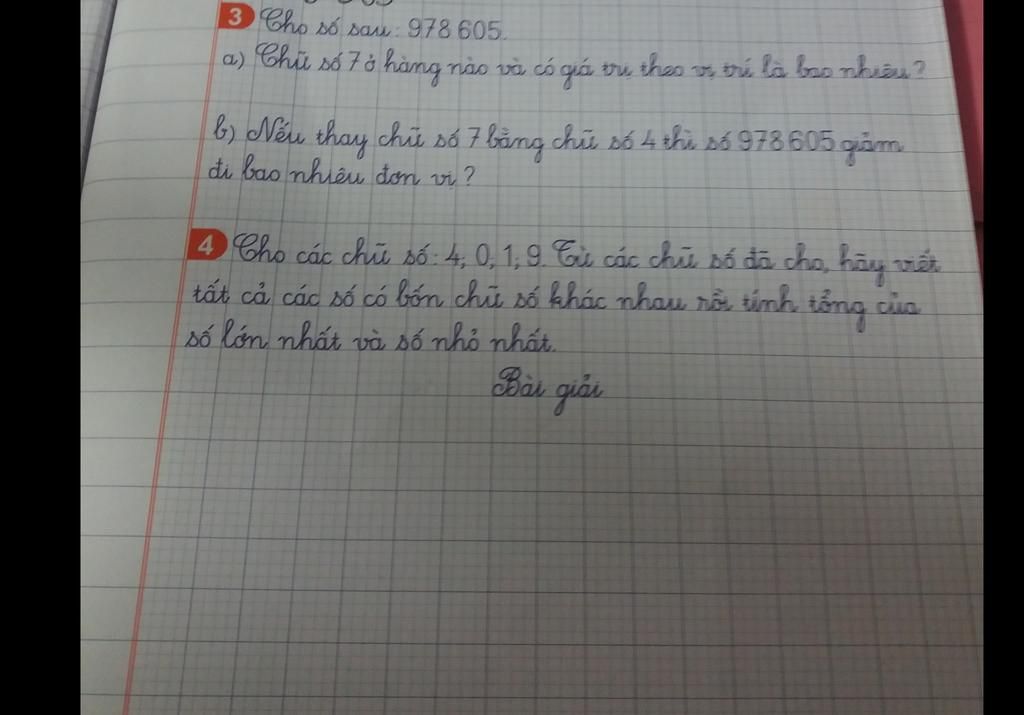 3 Cho số sau: 978 605.
a) Chữ số 7 ở hàng nào và có giá trị theo vị trí là bao nhiêu?
b) Nếu thay chữ số 7 bằng chữ số 4 thì số 978 605 giảm
đi bao nhiêu đơn vị?
4 Cho các chữ số: 4; 0; 1; 9. Từ các chữ số đã cho, hãy viết
tất cả các số có bốn chữ số khác nhau rồi tính tổng của
số lớn nhất và số nhỏ nhất.
Bài giải